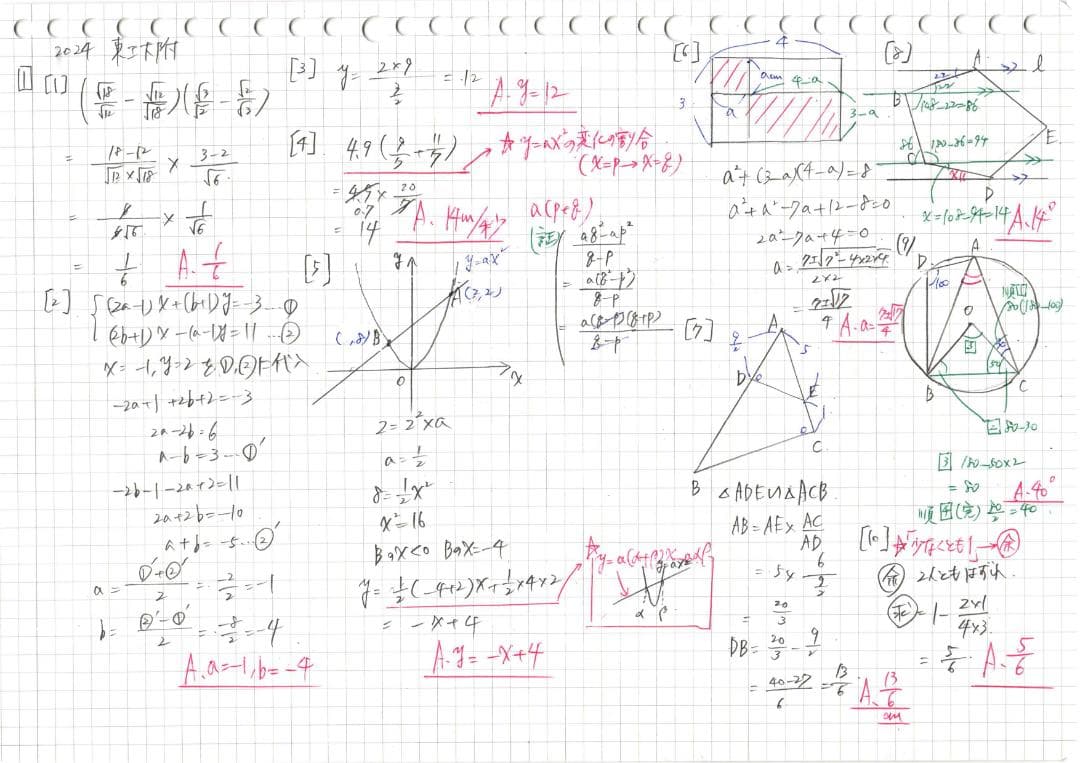 2024 東工大附
1
[1] (√18/√12 − √12/√18)(√3/√2 − √2/√3)
= (18−12)/(√12×√18) × (3−2)/√6
= 6/(6√6) × 1/√6
= 1/6 A. 1/6
[2] {(2a−1)x+(b+1)y=−3 …①
(2b+1)x−(a−1)y=11 …②
x=−1, y=2を①,②に代入
−2a+1+2b+2=−3
2a−2b=6
a−b=3…①′
−2b−1−2a+2=11
2a+2b=−10
a+b=−5…②′
a=(①′+②′)/2=−2/2=−1
b=(②′−①′)/2=−8/2=−4
A. a=−1, b=−4
[3] y=(2×9)/(3/2)=12
A. y=12
[4] 4.9(9/7+11/7)
☆y=ax²の変化の割合
(x=p→x=q)
=4.9×20/7
0.7
=14 A. 14m/秒
a(p+q)
(証) (aq²−ap²)/(q−p)
=a(q²−p²)/(q−p)
=a(q−p)(q+p)/(q−p)
[5] y y=ax²
A(2,2)
( ,8)B
O x
2=2²×a
a=1/2
8=1/2x²
x²=16
Bのx<0 Bのx=−4
y=1/2(−4+2)x+1/2×4×2
=−x+4
A. y=−x+4
☆y=a(α+β)x−aαβ
y=ax²
α β
[6] 4
acm 4−a
3 a 3−a
a²+(3−a)(4−a)=8
a²+a²−7a+12−8=0
2a²−7a+4=0
a=(7±√(7²−4×2×4))/(2×2)
=(7±√17)/4 A. a=(7±√17)/4
[7] A
9/2 5
D E
1
C
B △ADE∽△ACB
AB=AE×AC/AD
=5×6/(9/2)
=20/3
DB=20/3−9/2
=(40−27)/6=13/6 A. 13/6 cm
[8] A ℓ
22
22
B 108−22=86
E
86 180−86=94
C
x D
x=108−94=14 A. 14°
[9] A
D
100
O
3
50
B C
2
3 180−50×2
=80 A. 40°
80/2=40
[10] ☆「少なくとも1」→余
余 2人ともはずれ
求=1−(2×1)/(4×3)
=5/6 A. 5/6